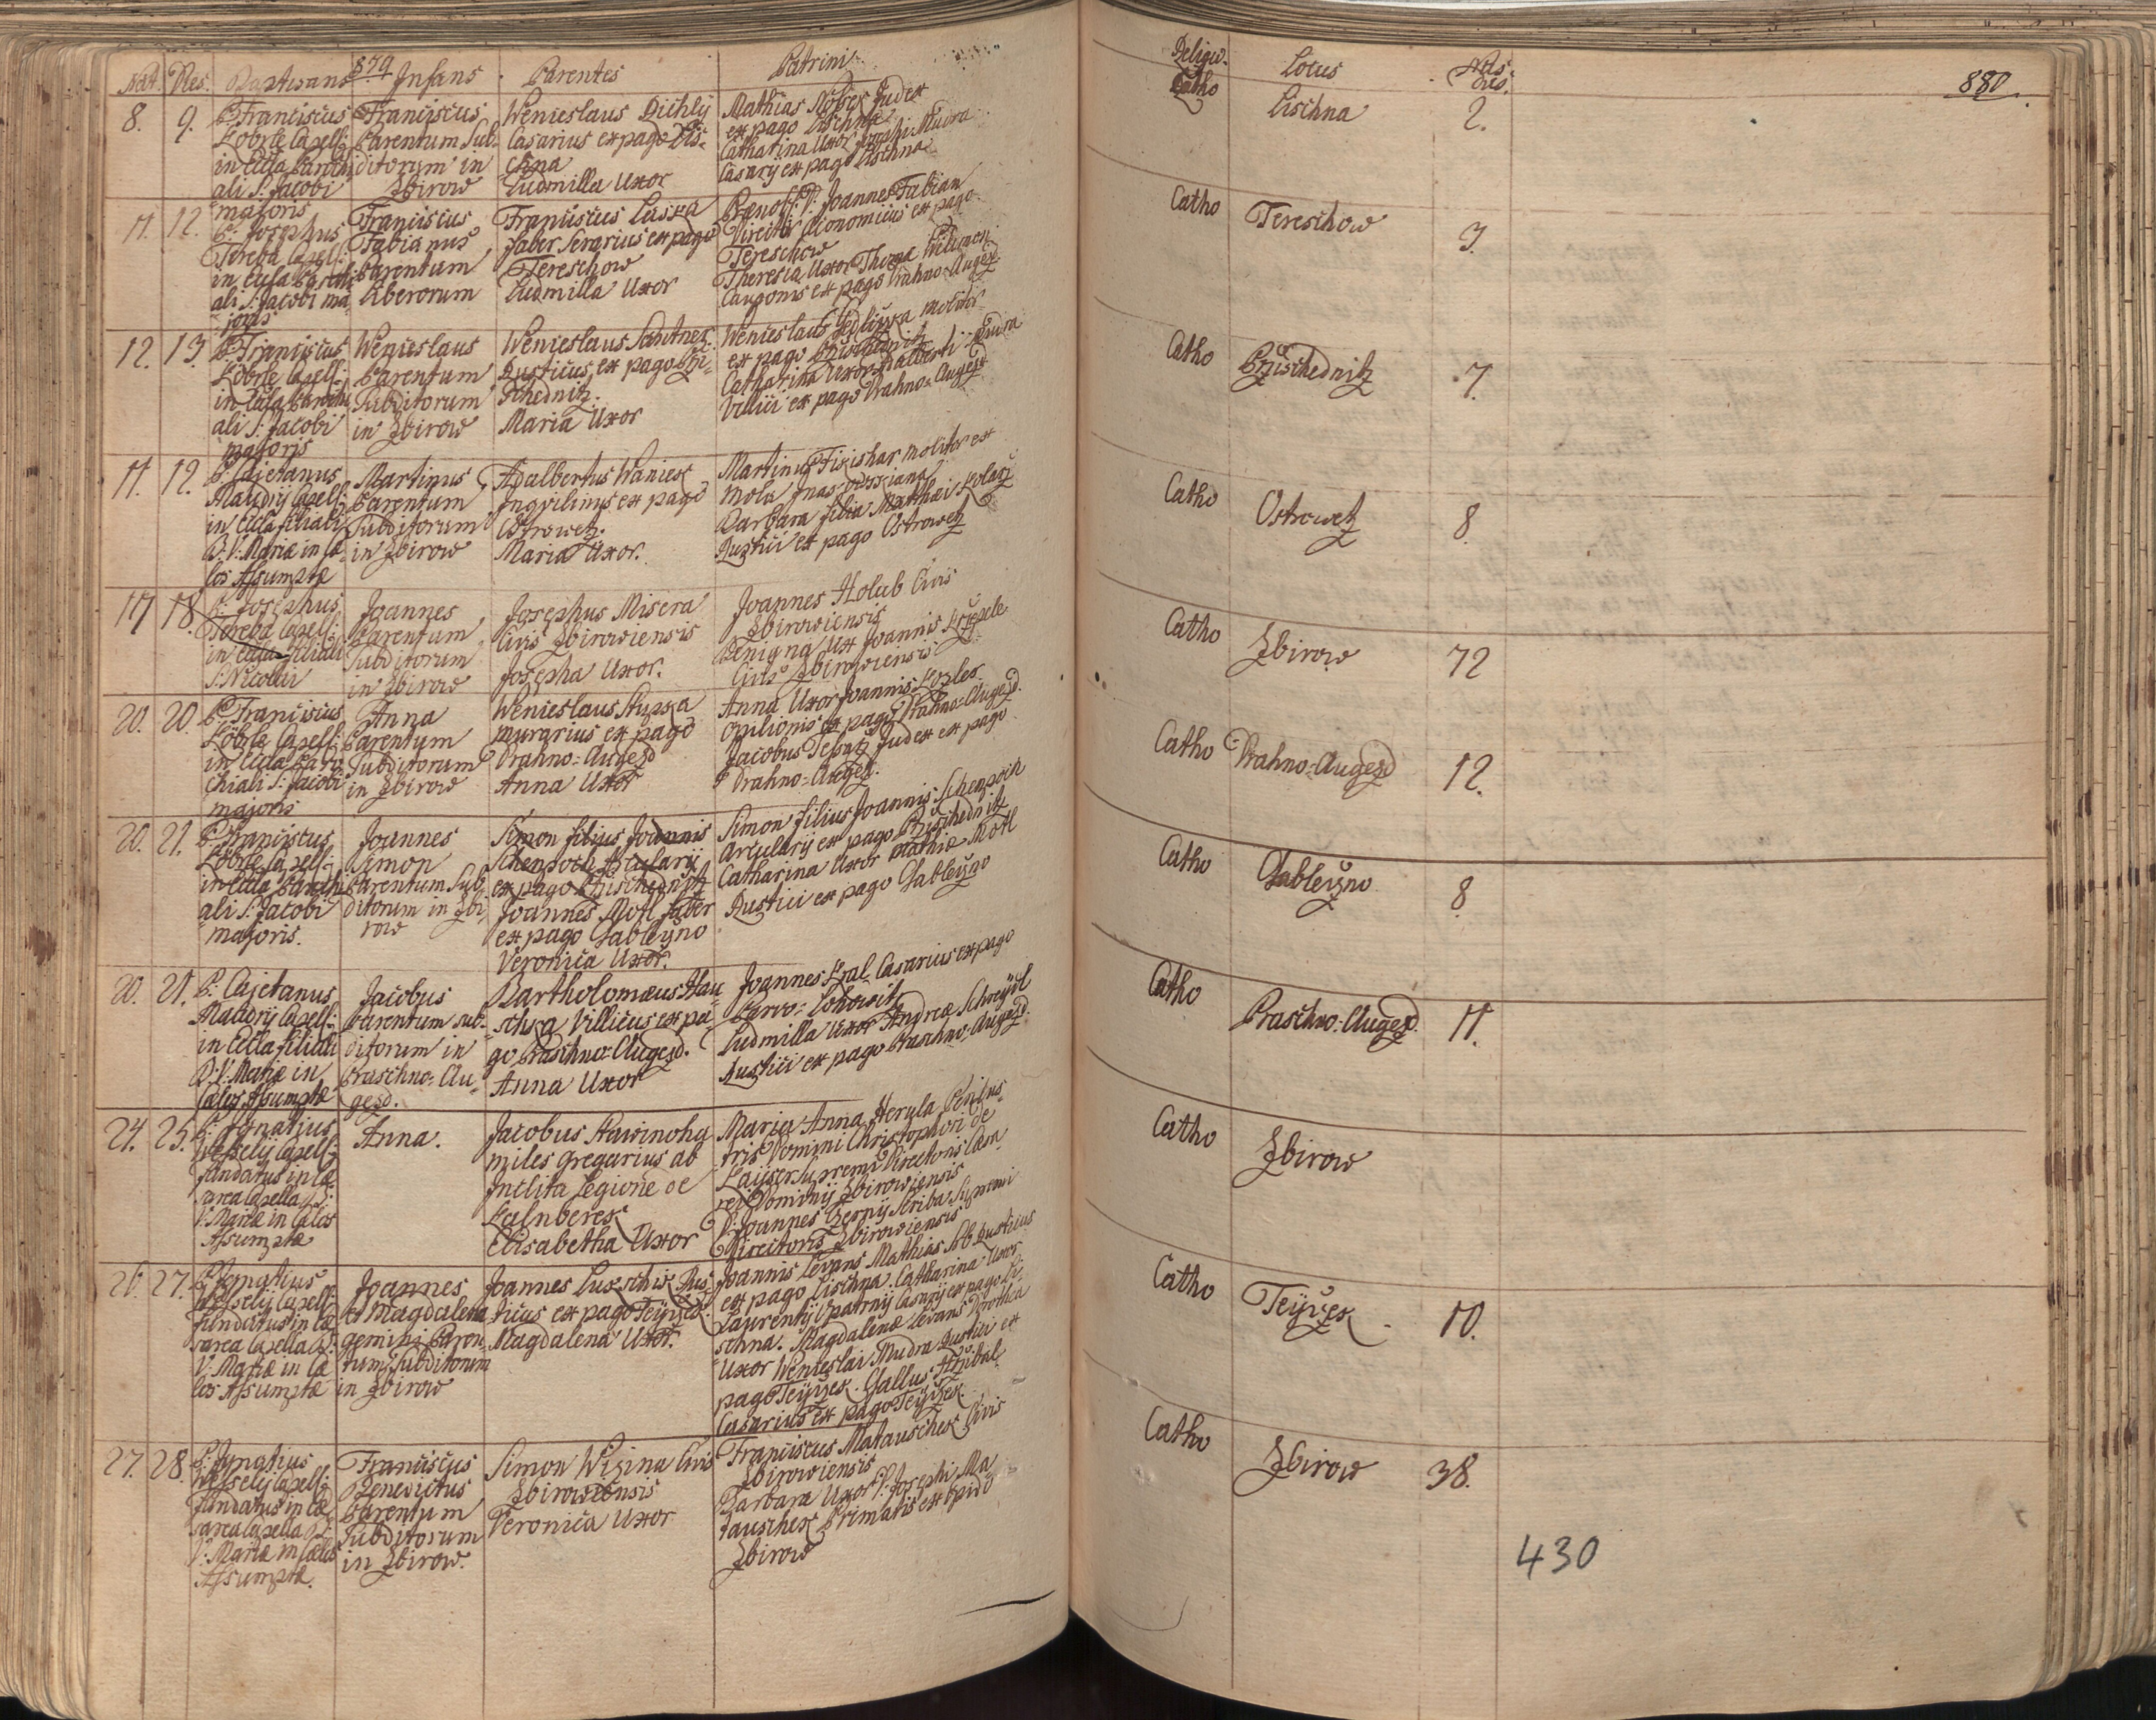 879
Nat. Res. Baptisans Infans Parentes Patrini
8. 9.
P. Franciscus
Köbrle Capell:
in Eccla Parochi
ali S: Jacobi
majoris
Franciscus
Parentum Sub-
ditorum in
Zbirow
Wenceslaus Dichly
Casarius ex pago Lis-
chna
Ludmilla Uxor
Mathias Judex
ex pago Lischna
Catharina Uxor Josephi Mudra
Casarij ex pago Lischna
11. 12.
P. Josephus
Tereba Capell:
in Eccla Parochi
ali S: Jacobi ma
joris
Franciscus
Fabianus
Parentum
Liberorum
Franciscus Luska
faber Serarius ex pago
Tereschow
Ludmilla Uxor
Prænob: D: Joannes Fabian
Director Œconomicus ex pago
Tereschow
Theresia Uxor Thoma
Cauponis ex pago Drahno-Augezd
12. 13.
P. Franciscus
Köbrle Capell:
in Eccla Parochi
ali S: Jacobi
majoris
Wenceslaus
Parentum
Subditorum
in Zbirow
Wenceslaus
Rusticus ex pago Przi-
schednitz.
Maria Uxor
Wenceslaus Molitor
ex pago Przischednitz
Catharina Uxor Adalberti Mudra
Villici ex pago Drahno-Augezd
11. 12.
P. Cajetanus
Maudrij Capell:
in Eccla filiali
B: V: Mariæ in Cæ
los Assumptæ
Martinus
Parentum
Subditorum
in Zbirow
Adalbertus Waniek
Inquilinus ex pago
Ostrowetz.
Maria Uxor.
Martinus Fikishar Molitor ex
Mola
Barbara filia Matthæi Kolarz
Rustici ex pago Ostrowetz
17 18.
P. Josephus
Tereba Capell:
in Eccla filiali
S: Nicolai
Joannes
Parentum
Subditorum
in Zbirow
Josephus Misera
Civis Zbirowiensis
Josepha Uxor.
Joannes Holub Civis
Zbirowiensis
Benigna Ux Joannis
Civis Zbirowiensis
20. 20.
P. Franciscus
Köbrle Capell:
in Eccla Paro
chiali S: Jacobi
majoris
Anna
Parentum
Subditorum
in Zbirow
Wenceslaus Stupka
murarius ex pago
Drahno-Augezd
Anna Uxor
Anna Uxor Joannis
opilionis ex pago Drahno-Augezd.
Jacobus Judex ex pago
Drahno-Augez.
20. 21.
P. Franciscus
Köbrle Capell:
in Eccla Parochi
ali S: Jacobi
majoris.
Joannes
Simon
Parentum Sub
ditorum in Zbi
row
Simon filius Joannis
Schenpoch Arcularij
ex pago Przischednitz
Joannes Motl faber
ex pago Jableczno
Veronica Uxor.
Simon filius Joannis Schenpoch
Arcularij ex pago Przischednitz
Catharina Uxor Mathiæ Motl
Rustici ex pago Jableczno
20. 21.
P: Cajetanus
Maudrij Capell:
in Eccla filiali
B: V: Mariæ in
Cælos Assumptæ
Jacobus
Parentum sub-
ditorum in
Praschno-Au
gezd.
Bartholomæus Hau
schka Villicus ex pa
go Praschno-Augezd.
Anna Uxor
Joannes Kral Casarius ex pago
Parvo-Lohowitz
Ludmilla Uxor Andreæ
Rustici ex pago Praschno-Augezd
24. 25.
P: Ignatius
Wesselij Capell:
fundatus in Cæ
sarea Capella B:
V: Mariæ in Cælos
Assumptæ
Anna.
Jacobus Stawinoha
miles gregarius ab
Inclita Legione de
Kalnberek
Elisabetha Uxor
Maria Anna
Domini Christophori de
Kaijser Supremi Directoris Cæsa
rei Dominij Zbirowiensis
D: Joannes Czernij Scriba Supremi
Directoris Zbirowiensis
26. 27.
P. Ignatius
Wesselij Capell:
fundatus in Cæ
sarea Capella B:
V: Mariæ in Cæ
los Assumptæ
Joannes
et Magdalena
gemini Paren-
tum Subditorum
in Zbirow
Joannes Luxschik Rus
ticus ex pago Teijczek.
Magdalena Uxor.
Joannis Levans Mathias Rusticus
ex pago Lischna. Catharina Uxor
Laurentij Opatrnij Casarij ex pago Li-
schna. Magdalenæ Levans Dorothea
Uxor Wenceslai Mudra Rustici ex
pago Teijczek. Gallus Hrubal
Casarius ex pago Teijczek.
27. 28.
P. Ignatius
Wesselij Capell:
fundatus in Cæ
sarea Capella B:
V: Mariæ in Cælos
Assumptæ.
Franciscus
Benedictus
Parentum
Subditorum
in Zbirow.
Simon Wizina Civis
Zbirowiensis
Veronica Uxor
Franciscus Matauschek Civis
Zbirowiensis
Barbara Uxor D: Josephi Ma
tauschek Primatis ex Opido
Zbirow
Religio. Locus
880.
Catho Lischna 2.
Catho Tereschow 3.
Catho Przischednitz 7.
Catho Ostrowetz 8.
Catho Zbirow 72
Catho Drahno-Augezd 12.
Catho Jableczno 8
Catho Praschno-Augezd. 11.
Catho Zbirow
Catho Teijczek 10.
Catho Zbirow 38.
430